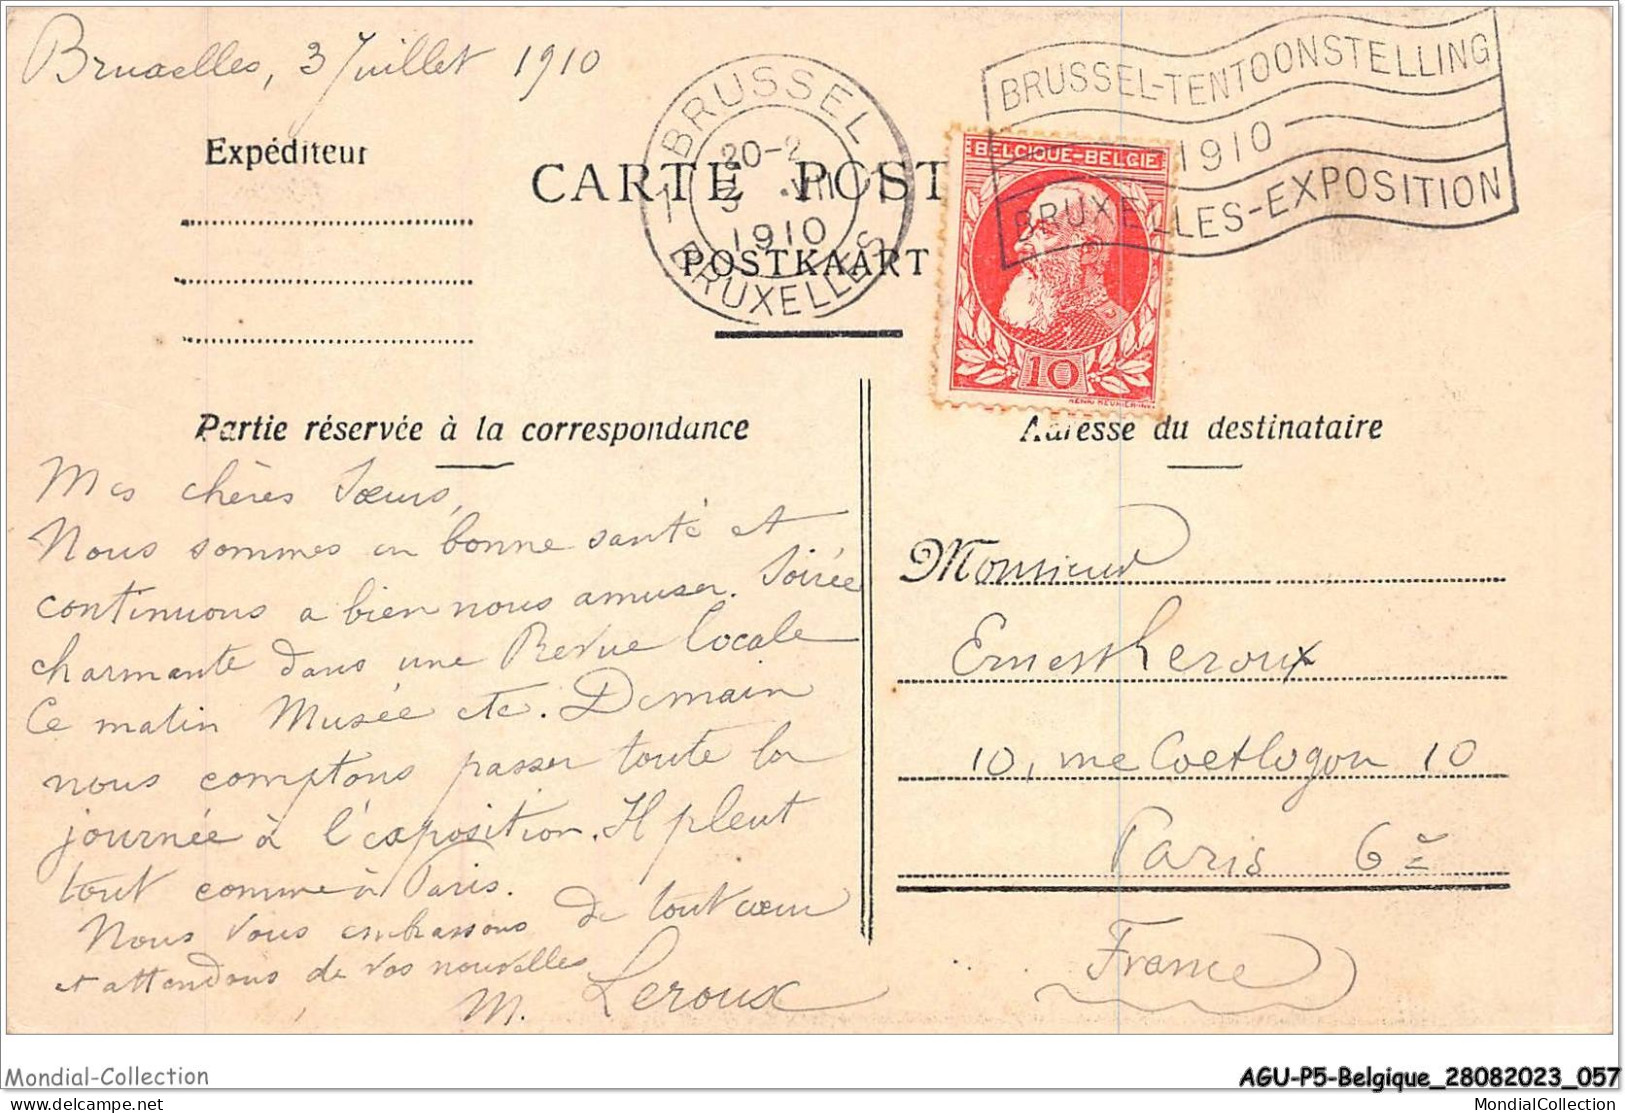 Bruxelles, 3 Juillet 1910
BRUSSEL-TENTOONSTELLING
1910
BRUXELLES-EXPOSITION
1 BRUSSEL 1
20-2
3 VII
1910
BRUXELLES
Expéditeur
CARTE POST
POSTKAART
BELGIQUE-BELGIË
10
Partie réservée à la correspondance
Adresse du destinataire
Mes chères Sœurs,
Nous sommes en bonne santé et
continuons a bien nous amuser. Soirée
charmante dans une Revue locale
Ce matin Musée etc. Demain
nous comptons passer toute la
journée à l'exposition. Il pleut
tout comme à Paris.
Nous vous embrassons de tout cœur
et attendons de vos nouvelles
M. Leroux
Monsieur
Ernest Leroux
10, rue Coetlogon 10
Paris 6e
France
Mondial-Collection
delcampe.net
AGU-P5-Belgique_28082023_057
MondialCollection